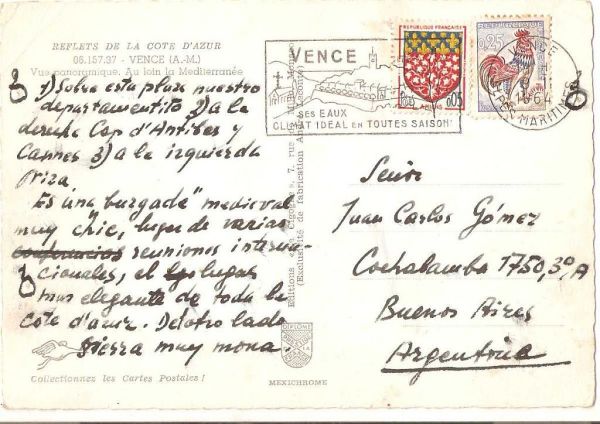 REFLETS DE LA COTE D'AZUR
06.157.37 - VENCE (A.-M.)
Vue panoramique. Au loin la Mediterranée
1) Sobre esta plaza nuestro
departamentito 2) a la
derecha Cap d'Antibes y
Cannes 3) a la izquierda
Niza
Es una burgade medieval
muy "chic", lugar de varias
conferencias reuniones interna-
cionales, el lugar
mas elegante de toda la
cote d'azur. Del otro lado
sierra muy mona.
Collectionnez les Cartes Postales !
MEXICHROME
DIPLOME
VENCE
SES EAUX
CLIMAT IDEAL EN TOUTES SAISONS
REPUBLIQUE FRANÇAISE
0,05
AMIENS
0,25
VENCE
ALPES MARITIMES
Señor
Juan Carlos Gómez
Cochabamba 1750, 3º, A
Buenos Aires
Argentina